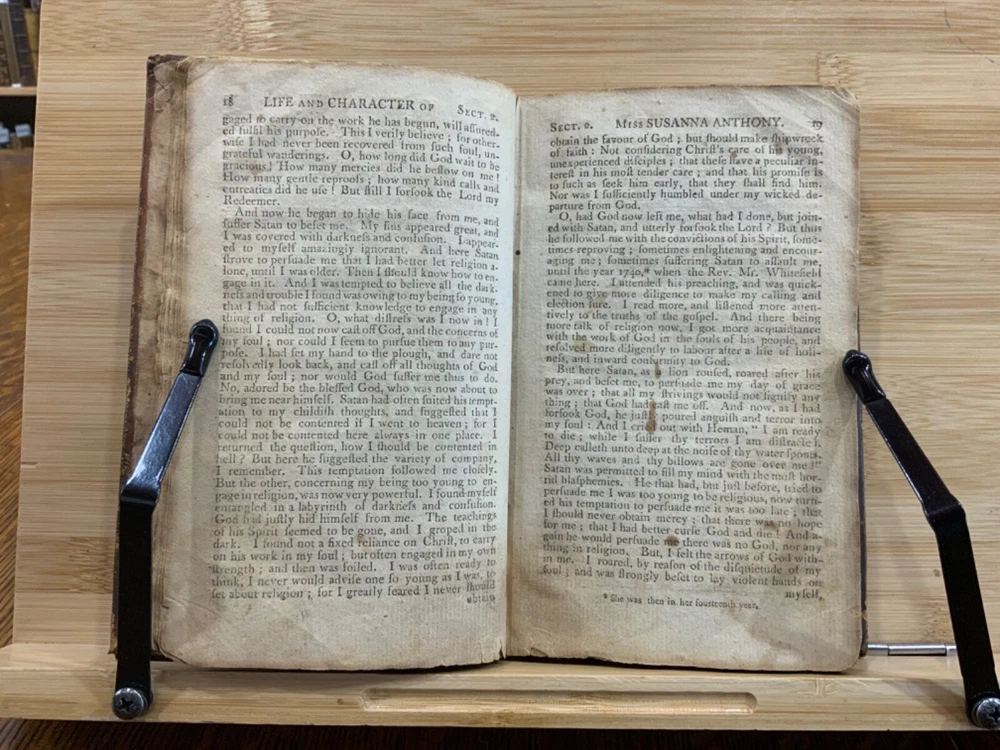 18 LIFE AND CHARACTER OF Sect. 2.
gaged to carry on the work he has begun, will aſſured-
ed fulfil his purpoſe. This I verily believe; for other-
wiſe I had never been recovered from ſuch foul, un-
grateful wanderings. O, how long did God wait to be
gracious! How many mercies did he beſtow on me!
How many gentle reproofs; how many kind calls and
entreaties did he uſe! But ſtill I forſook the Lord my
Redeemer.
And now he began to hide his face from me, and
ſuffer Satan to beſet me. My ſins appeared great, and
I was covered with darkneſs and confuſion. I appear-
ed to myſelf amazingly ignorant. And here Satan
ſtrove to perſuade me that I had better let religion a-
lone, until I was older. Then I ſhould know how to en-
gage in it. And I was tempted to believe all the dark-
neſs and trouble I found was owing to my being ſo young,
that I had not ſufficient knowledge to engage in any
thing of religion. O, what diſtreſs was I now in! I
found I could not now caſt off God, and the concerns of
my ſoul; nor could I ſeem to purſue them to any pur-
poſe. I had ſet my hand to the plough, and dare not
reſolvedly look back, and caſt off all thoughts of God
and my ſoul; nor would God ſuffer me thus to do.
No, adored be the bleſſed God, who was now about to
bring me near himſelf. Satan had often ſuited his tempt-
ation to my childiſh thoughts, and ſuggeſted that I
could not be contented if I went to heaven; for I
could not be contented here always in one place. I
returned the queſtion, how I ſhould be contented in
hell? But here he ſuggeſted the variety of company,
I remember. This temptation followed me cloſely.
But the other, concerning my being too young to en-
gage in religion, was now very powerful. I found myſelf
entangled in a labyrinth of darkneſs and confuſion.
God had juſtly hid himſelf from me. The teachings
of his Spirit ſeemed to be gone, and I groped in the
dark. I found not a fixed reliance on Chriſt, to carry
on his work in my ſoul; but often engaged in my own
ſtrength; and then was foiled. I was often ready to
think, I never would adviſe one ſo young as I was, to
ſet about religion; for I greatly feared I never ſhould
obtain
Sect. 2. Miss SUSANNA ANTHONY. 19
obtain the favour of God; but ſhould make ſhipwreck
of faith: Not conſidering Chriſt's care of his young,
unexperienced diſciples; that theſe have a peculiar in-
tereſt in his moſt tender care; and that his promiſe is
to ſuch as ſeek him early, that they ſhall find him.
Nor was I ſufficiently humbled under my wicked de-
parture from God.
O, had God now left me, what had I done, but join-
ed with Satan, and utterly forſook the Lord? But thus
he followed me with the convictions of his Spirit, ſome-
times reproving; ſometimes enlightening and encour-
aging me; ſometimes ſuffering Satan to aſſault me,
until the year 1740,* when the Rev. Mr. Whitefield
came here. I attended his preaching, and was quick-
ened to give more diligence to make my calling and
election ſure. I read more, and liſtened more atten-
tively to the truths of the goſpel. And there being
more talk of religion now, I got more acquaintance
with the work of God in the ſouls of his people, and
reſolved more diligently to labour after a life of holi-
neſs, and inward conformity to God.
But here Satan, as a lion rouſed, roared after his
prey, and beſet me, to perſuade me my day of grace
was over; that all my ſtrivings would not ſignify any
thing; that God had caſt me off. And now, as I had
forſook God, he juſtly poured anguiſh and terror into
my ſoul: And I cried out with Heman, "I am ready
to die; while I ſuffer thy terrors I am diſtracted,
Deep calleth unto deep at the noiſe of thy water ſpouts.
All thy waves and thy billows are gone over me!"
Satan was permitted to fill my mind with the moſt hor-
rid blaſphemies. He that had, but juſt before, tried to
perſuade me I was too young to be religious, now turn-
ed his temptation to perſuade me it was too late; that
I ſhould never obtain mercy; that there was no hope
for me; that I had better curſe God and die! And a-
gain he would perſuade me there was no God, nor any
thing in religion. But, I felt the arrows of God with-
in me. I roared, by reaſon of the diſquietude of my
ſoul; and was ſtrongly beſet to lay violent hands on
myſelf.
* She was then in her fourteenth year.